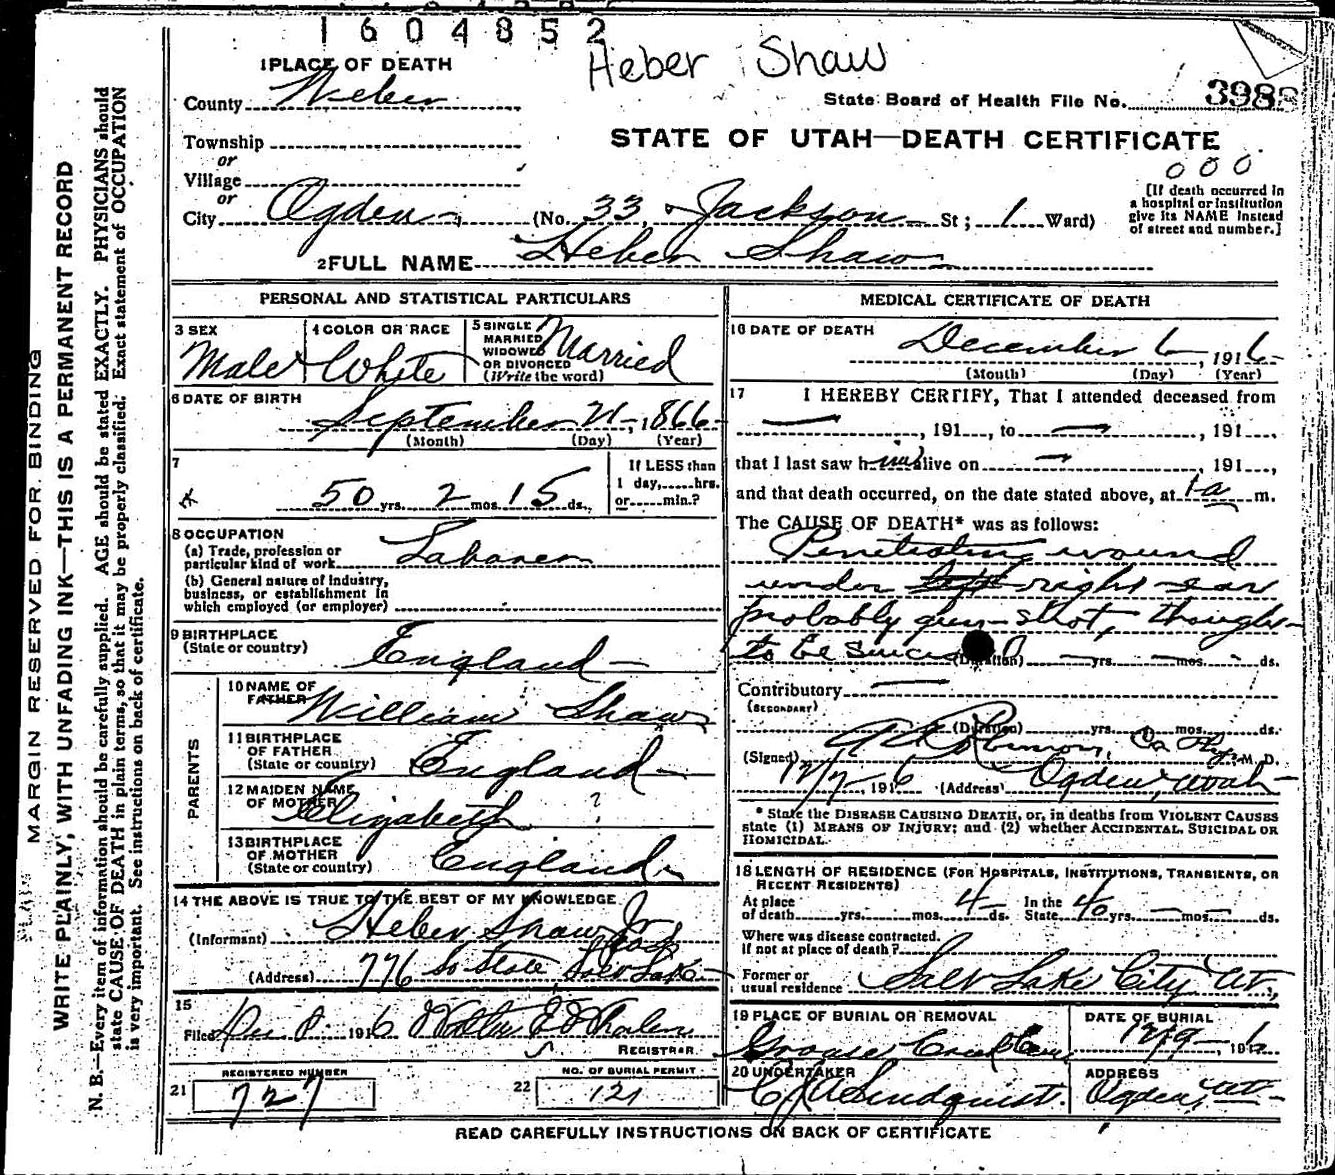 1604852
Heber Shaw
1 PLACE OF DEATH
County Weber
State Board of Health File No. 398
Township
or
Village
or
STATE OF UTAH—DEATH CERTIFICATE
000
[If death occurred in
a hospital or institution
give its NAME instead
of street and number.]
City Ogden (No. 33, Jackson St; 1 Ward)
2 FULL NAME Heber Shaw
PERSONAL AND STATISTICAL PARTICULARS
3 SEX
Male
4 COLOR OR RACE
White
5 SINGLE
MARRIED
WIDOWED
OR DIVORCED
(Write the word)
Married
6 DATE OF BIRTH
September 21, 1866
(Month) (Day) (Year)
7
50 yrs. 2 mos. 15 ds.
If LESS than
1 day,......hrs.
or......min.?
8 OCCUPATION
(a) Trade, profession or
particular kind of work Laborer
(b) General nature of Industry,
business, or establishment in
which employed (or employer)
9 BIRTHPLACE
(State or country) England
PARENTS
10 NAME OF
FATHER William Shaw
11 BIRTHPLACE
OF FATHER
(State or country) England
12 MAIDEN NAME
OF MOTHER Elizabeth ?
13 BIRTHPLACE
OF MOTHER
(State or country) England
14 THE ABOVE IS TRUE TO THE BEST OF MY KNOWLEDGE
(Informant) Heber Shaw Jr
(Address) 776 So State Salt Lake
15
Filed Dec 8 1916
REGISTRAR.
21 REGISTERED NUMBER
727
22 NO. OF BURIAL PERMIT
121
MEDICAL CERTIFICATE OF DEATH
16 DATE OF DEATH
December 6, 1916
(Month) (Day) (Year)
17 I HEREBY CERTIFY, That I attended deceased from
— , 191..., to — , 191...,
that I last saw him alive on — , 191...,
and that death occurred, on the date stated above, at 1 a m.
The CAUSE OF DEATH* was as follows:
Penetrating wound
under left right ear
probably gun-shot, thought
to be suicidal
(Duration) — yrs. — mos. — ds.
Contributory —
(SECONDARY)
(Duration) yrs. mos. ds.
(Signed) Robinson, Co Phy. M. D.
12/7, 1916 (Address) Ogden, Utah
* State the DISEASE CAUSING DEATH, or, in deaths from VIOLENT CAUSES
state (1) MEANS OF INJURY; and (2) whether ACCIDENTAL, SUICIDAL OR
HOMICIDAL.
18 LENGTH OF RESIDENCE (FOR HOSPITALS, INSTITUTIONS, TRANSIENTS, OR
RECENT RESIDENTS)
At place
of death yrs. mos. 4 ds. In the
State 46 yrs. — mos. — ds.
Where was disease contracted.
if not at place of death?
Former or
usual residence Salt Lake City Ut,
19 PLACE OF BURIAL OR REMOVAL
DATE OF BURIAL
12/9, 1916
20 UNDERTAKER
C J A Lindquist.
ADDRESS
Ogden, Ut
READ CAREFULLY INSTRUCTIONS ON BACK OF CERTIFICATE
MARGIN RESERVED FOR BINDING
WRITE PLAINLY, WITH UNFADING INK—THIS IS A PERMANENT RECORD
N. B.—Every item of information should be carefully supplied. AGE should be stated EXACTLY. PHYSICIANS should
state CAUSE OF DEATH in plain terms, so that it may be properly classified. Exact statement of OCCUPATION
is very important. See instructions on back of certificate.